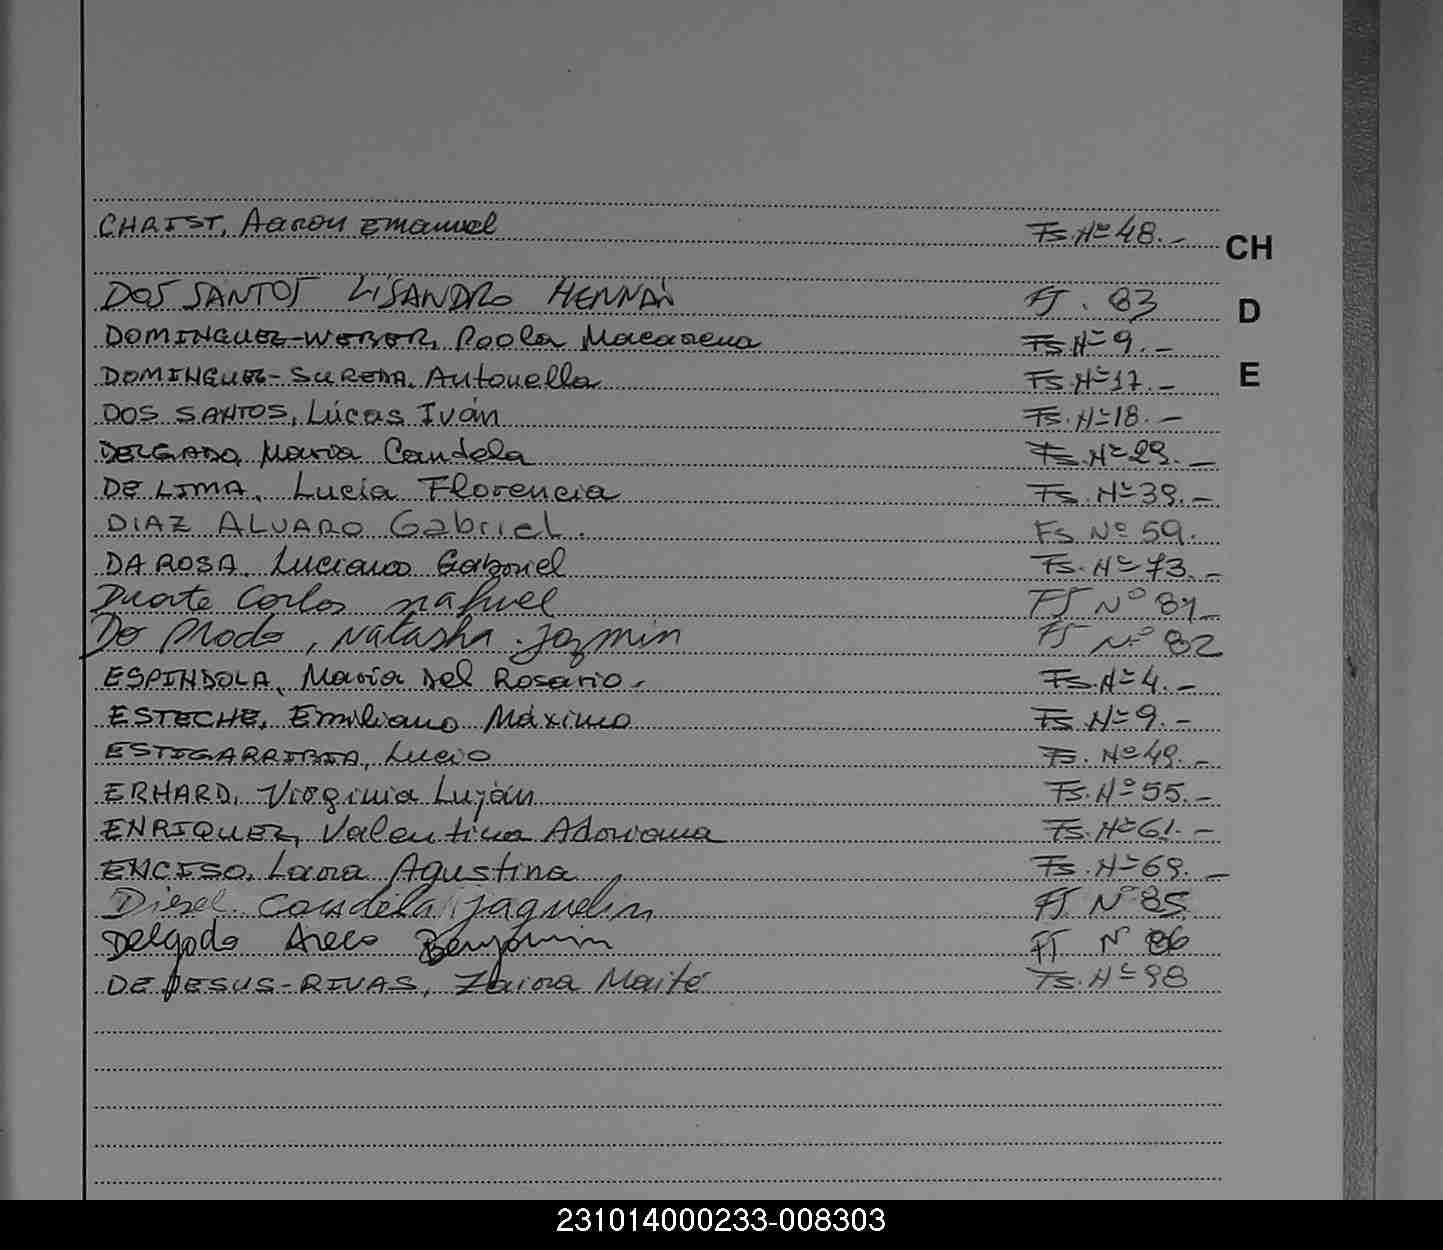 CHRIST, Aaron Emanuel Fs. Nº 48.- CH
DOS SANTOS LISANDRO HERNAN FS. 83 D
DOMINGUEZ-WEBER, Paola Macarena Fs Nº 9.-
DOMINGUEZ-SUREDA, Antonella Fs. Nº 17.- E
DOS SANTOS, Lúcas Iván Fs. Nº 18.-
DELGADO, María Candela Fs. Nº 29.-
DE LIMA, Lucía Florencia Fs. Nº 39.-
DIAZ ALVARO Gabriel. Fs Nº 59.
DA ROSA, Luciano Gabriel Fs. Nº 73.-
Duarte Carlos nahuel FS Nº 81
Do Prado, Natasha Jazmin FS Nº 82
ESPINDOLA, María Del Rosario.- Fs. Nº 4.-
ESTECHE, Emiliano Máximo Fs Nº 9.-
ESTIGARRIBIA, Lucio Fs. Nº 49.-
ERHARD, Virginia Luján Fs. Nº 55.-
ENRIQUEZ, Valentina Adriana Fs. Nº 61.-
ENCISO, Lara Agustina Fs. Nº 69.-
Diesel Candela jaquelin FS Nº 85
Delgado Areco Benjamin FS Nº 86
DE JESUS-RIVAS, Zaira Maité Fs. Nº 98
231014000233-008303